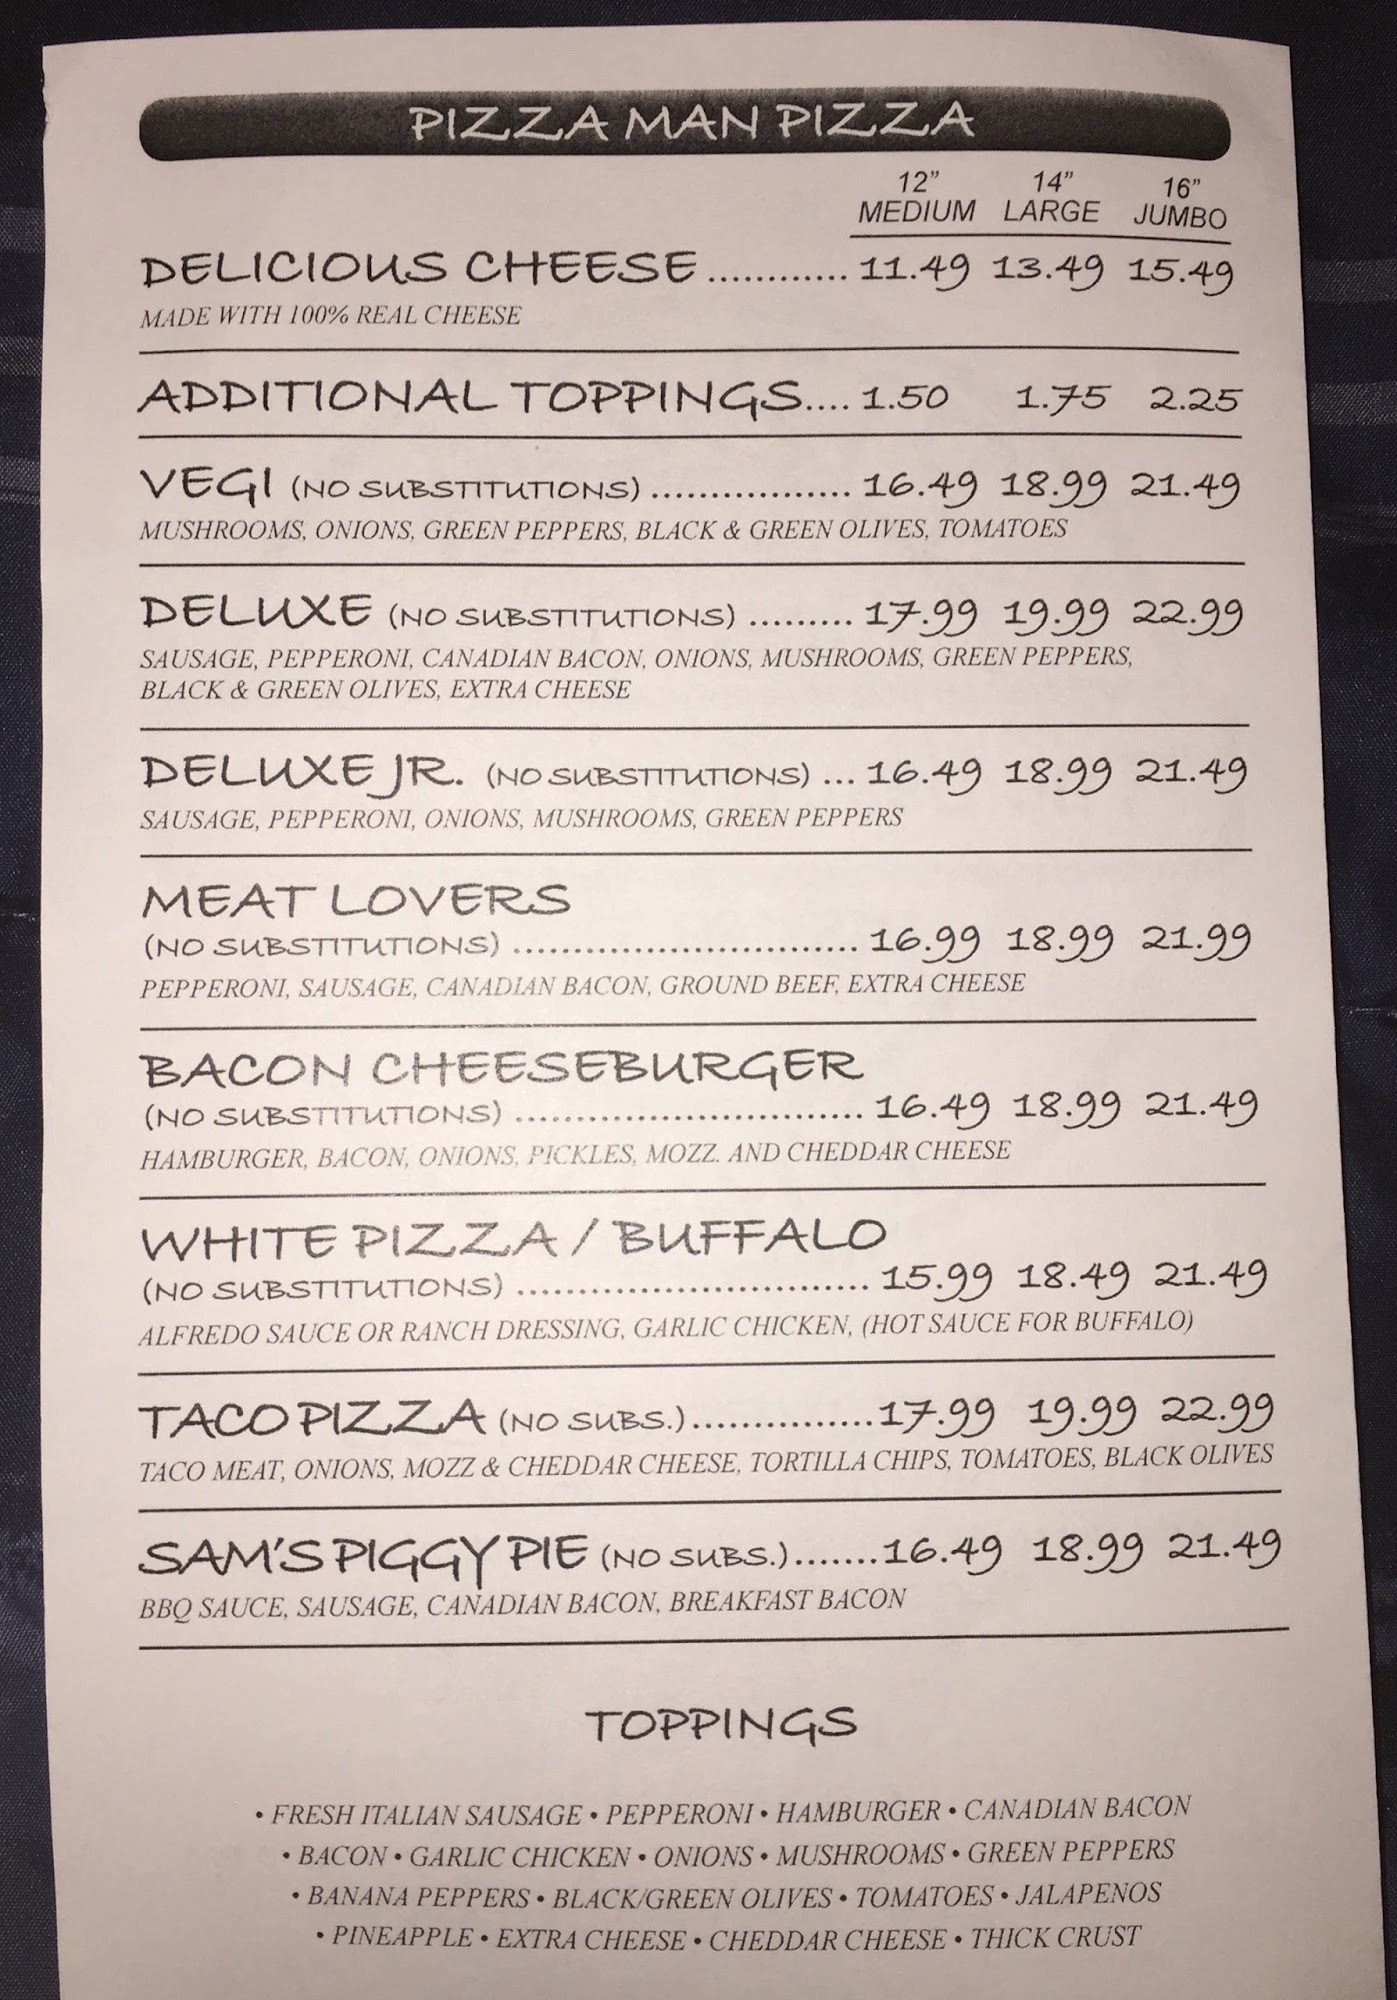 PIZZA MAN PIZZA
12" 14" 16"
MEDIUM LARGE JUMBO
DELICIOUS CHEESE ............ 11.49 13.49 15.49
MADE WITH 100% REAL CHEESE
ADDITIONAL TOPPINGS.... 1.50 1.75 2.25
VEGI (NO SUBSTITUTIONS) ................. 16.49 18.99 21.49
MUSHROOMS, ONIONS, GREEN PEPPERS, BLACK & GREEN OLIVES, TOMATOES
DELUXE (NO SUBSTITUTIONS) ......... 17.99 19.99 22.99
SAUSAGE, PEPPERONI, CANADIAN BACON, ONIONS, MUSHROOMS, GREEN PEPPERS,
BLACK & GREEN OLIVES, EXTRA CHEESE
DELUXE JR. (NO SUBSTITUTIONS) ... 16.49 18.99 21.49
SAUSAGE, PEPPERONI, ONIONS, MUSHROOMS, GREEN PEPPERS
MEAT LOVERS
(NO SUBSTITUTIONS) ............................. 16.99 18.99 21.99
PEPPERONI, SAUSAGE, CANADIAN BACON, GROUND BEEF, EXTRA CHEESE
BACON CHEESEBURGER
(NO SUBSTITUTIONS) ............................. 16.49 18.99 21.49
HAMBURGER, BACON, ONIONS, PICKLES, MOZZ. AND CHEDDAR CHEESE
WHITE PIZZA / BUFFALO
(NO SUBSTITUTIONS) ............................. 15.99 18.49 21.49
ALFREDO SAUCE OR RANCH DRESSING, GARLIC CHICKEN, (HOT SAUCE FOR BUFFALO)
TACO PIZZA (NO SUBS.)...............17.99 19.99 22.99
TACO MEAT, ONIONS, MOZZ & CHEDDAR CHEESE, TORTILLA CHIPS, TOMATOES, BLACK OLIVES
SAM'S PIGGY PIE (NO SUBS.).......16.49 18.99 21.49
BBQ SAUCE, SAUSAGE, CANADIAN BACON, BREAKFAST BACON
TOPPINGS
• FRESH ITALIAN SAUSAGE • PEPPERONI • HAMBURGER • CANADIAN BACON
• BACON • GARLIC CHICKEN • ONIONS • MUSHROOMS • GREEN PEPPERS
• BANANA PEPPERS • BLACK/GREEN OLIVES • TOMATOES • JALAPENOS
• PINEAPPLE • EXTRA CHEESE • CHEDDAR CHEESE • THICK CRUST